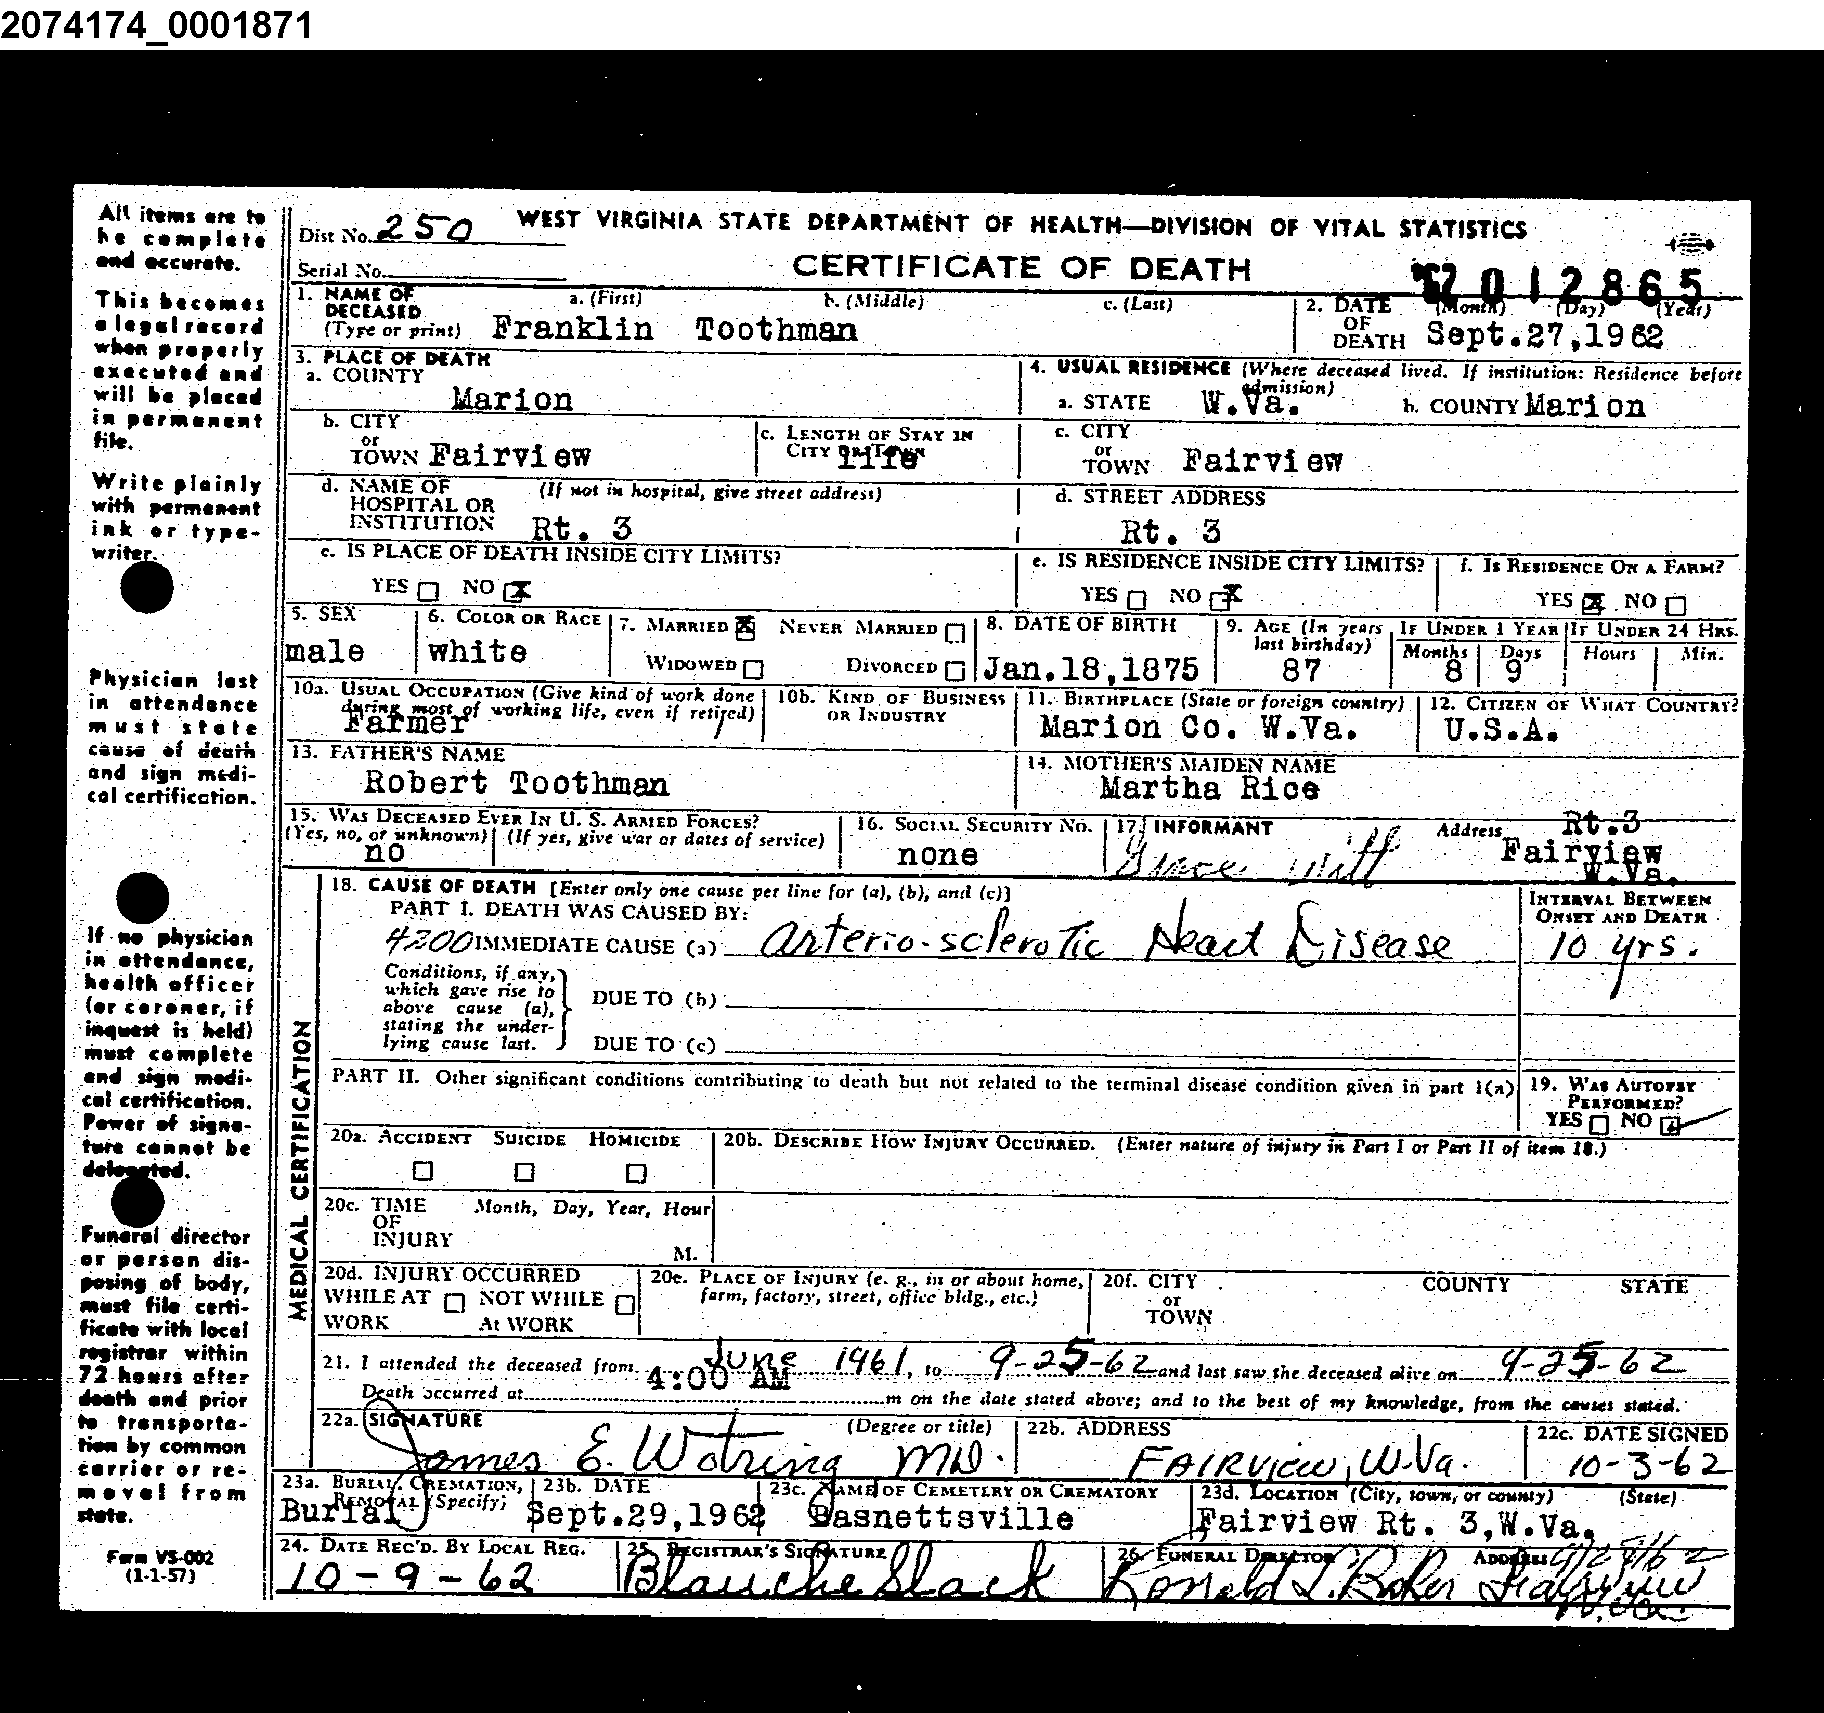 2074174_0001871
All items are to
be complete
and accurate.
This becomes
a legal record
when properly
executed and
will be placed
in permanent
file.
Write plainly
with permanent
ink or type-
writer.
Physician last
in attendance
must state
cause of death
and sign medi-
cal certification.
If no physician
in attendance,
health officer
(or coroner, if
inquest is held)
must complete
and sign medi-
cal certification.
Power of signa-
ture cannot be
delegated.
Funeral director
or person dis-
posing of body,
must file certi-
ficate with local
registrar within
72 hours after
death and prior
to transporta-
tion by common
carrier or re-
moval from
state.
Form VS-002
(1-1-57)
Dist No. 250 WEST VIRGINIA STATE DEPARTMENT OF HEALTH—DIVISION OF VITAL STATISTICS
Serial No. CERTIFICATE OF DEATH 012865
1. NAME OF DECEASED (Type or print) a. (First) b. (Middle) c. (Last)
Franklin Toothman
2. DATE OF DEATH (Month) (Day) (Year)
Sept.27,1962
3. PLACE OF DEATH
a. COUNTY Marion
4. USUAL RESIDENCE (Where deceased lived. If institution: Residence before admission)
a. STATE W.Va. b. COUNTY Marion
b. CITY or TOWN Fairview
c. LENGTH OF STAY IN CITY OR TOWN life
c. CITY or TOWN Fairview
d. NAME OF HOSPITAL OR INSTITUTION (If not in hospital, give street address) Rt. 3
d. STREET ADDRESS Rt. 3
e. IS PLACE OF DEATH INSIDE CITY LIMITS?
YES NO X
e. IS RESIDENCE INSIDE CITY LIMITS?
YES NO X
f. IS RESIDENCE ON A FARM?
YES X NO
5. SEX male
6. COLOR OR RACE white
7. MARRIED X NEVER MARRIED
WIDOWED DIVORCED
8. DATE OF BIRTH Jan.18,1875
9. AGE (In years last birthday) 87
IF UNDER 1 YEAR Months 8 Days 9
IF UNDER 24 HRS. Hours Min.
10a. USUAL OCCUPATION (Give kind of work done during most of working life, even if retired) Farmer
10b. KIND OF BUSINESS OR INDUSTRY
11. BIRTHPLACE (State or foreign country) Marion Co. W.Va.
12. CITIZEN OF WHAT COUNTRY? U.S.A.
13. FATHER'S NAME Robert Toothman
14. MOTHER'S MAIDEN NAME Martha Rice
15. WAS DECEASED EVER IN U. S. ARMED FORCES?
(Yes, no, or unknown) (If yes, give war or dates of service)
no
16. SOCIAL SECURITY NO. none
17. INFORMANT Grace Address Rt.3
Fairview
W.Va.
MEDICAL CERTIFICATION
18. CAUSE OF DEATH [Enter only one cause per line for (a), (b), and (c)]
PART I. DEATH WAS CAUSED BY:
4200 IMMEDIATE CAUSE (a) Arterio-sclerotic Heart Disease
INTERVAL BETWEEN ONSET AND DEATH
10 yrs.
Conditions, if any, which gave rise to above cause (a), stating the under-lying cause last.
DUE TO (b)
DUE TO (c)
PART II. Other significant conditions contributing to death but not related to the terminal disease condition given in part I(a)
19. WAS AUTOPSY PERFORMED?
YES NO
20a. ACCIDENT SUICIDE HOMICIDE
20b. DESCRIBE HOW INJURY OCCURRED. (Enter nature of injury in Part I or Part II of item 18.)
20c. TIME OF INJURY Month, Day, Year, Hour
M.
20d. INJURY OCCURRED
WHILE AT WORK NOT WHILE At WORK
20e. PLACE OF INJURY (e. g., in or about home, farm, factory, street, office bldg., etc.)
20f. CITY or TOWN COUNTY STATE
21. I attended the deceased from June 1961, to 9-25-62 and last saw the deceased alive on 9-25-62
Death occurred at 4:00 AM m on the date stated above; and to the best of my knowledge, from the causes stated.
22a. SIGNATURE (Degree or title)
James E. Wotring MD.
22b. ADDRESS
FAIRVIEW, W.Va.
22c. DATE SIGNED
10-3-62
23a. BURIAL, CREMATION, REMOVAL (Specify) Burial
23b. DATE Sept.29,1962
23c. NAME OF CEMETERY OR CREMATORY Basnettsville
23d. LOCATION (City, town, or county) (State)
Fairview Rt. 3,W.Va.
24. DATE REC'D. BY LOCAL REG.
10-9-62
25. REGISTRAR'S SIGNATURE
Blanche Slack
26. FUNERAL DIRECTOR ADDRESS
Ronald L. Baker Fairview
W.Va.